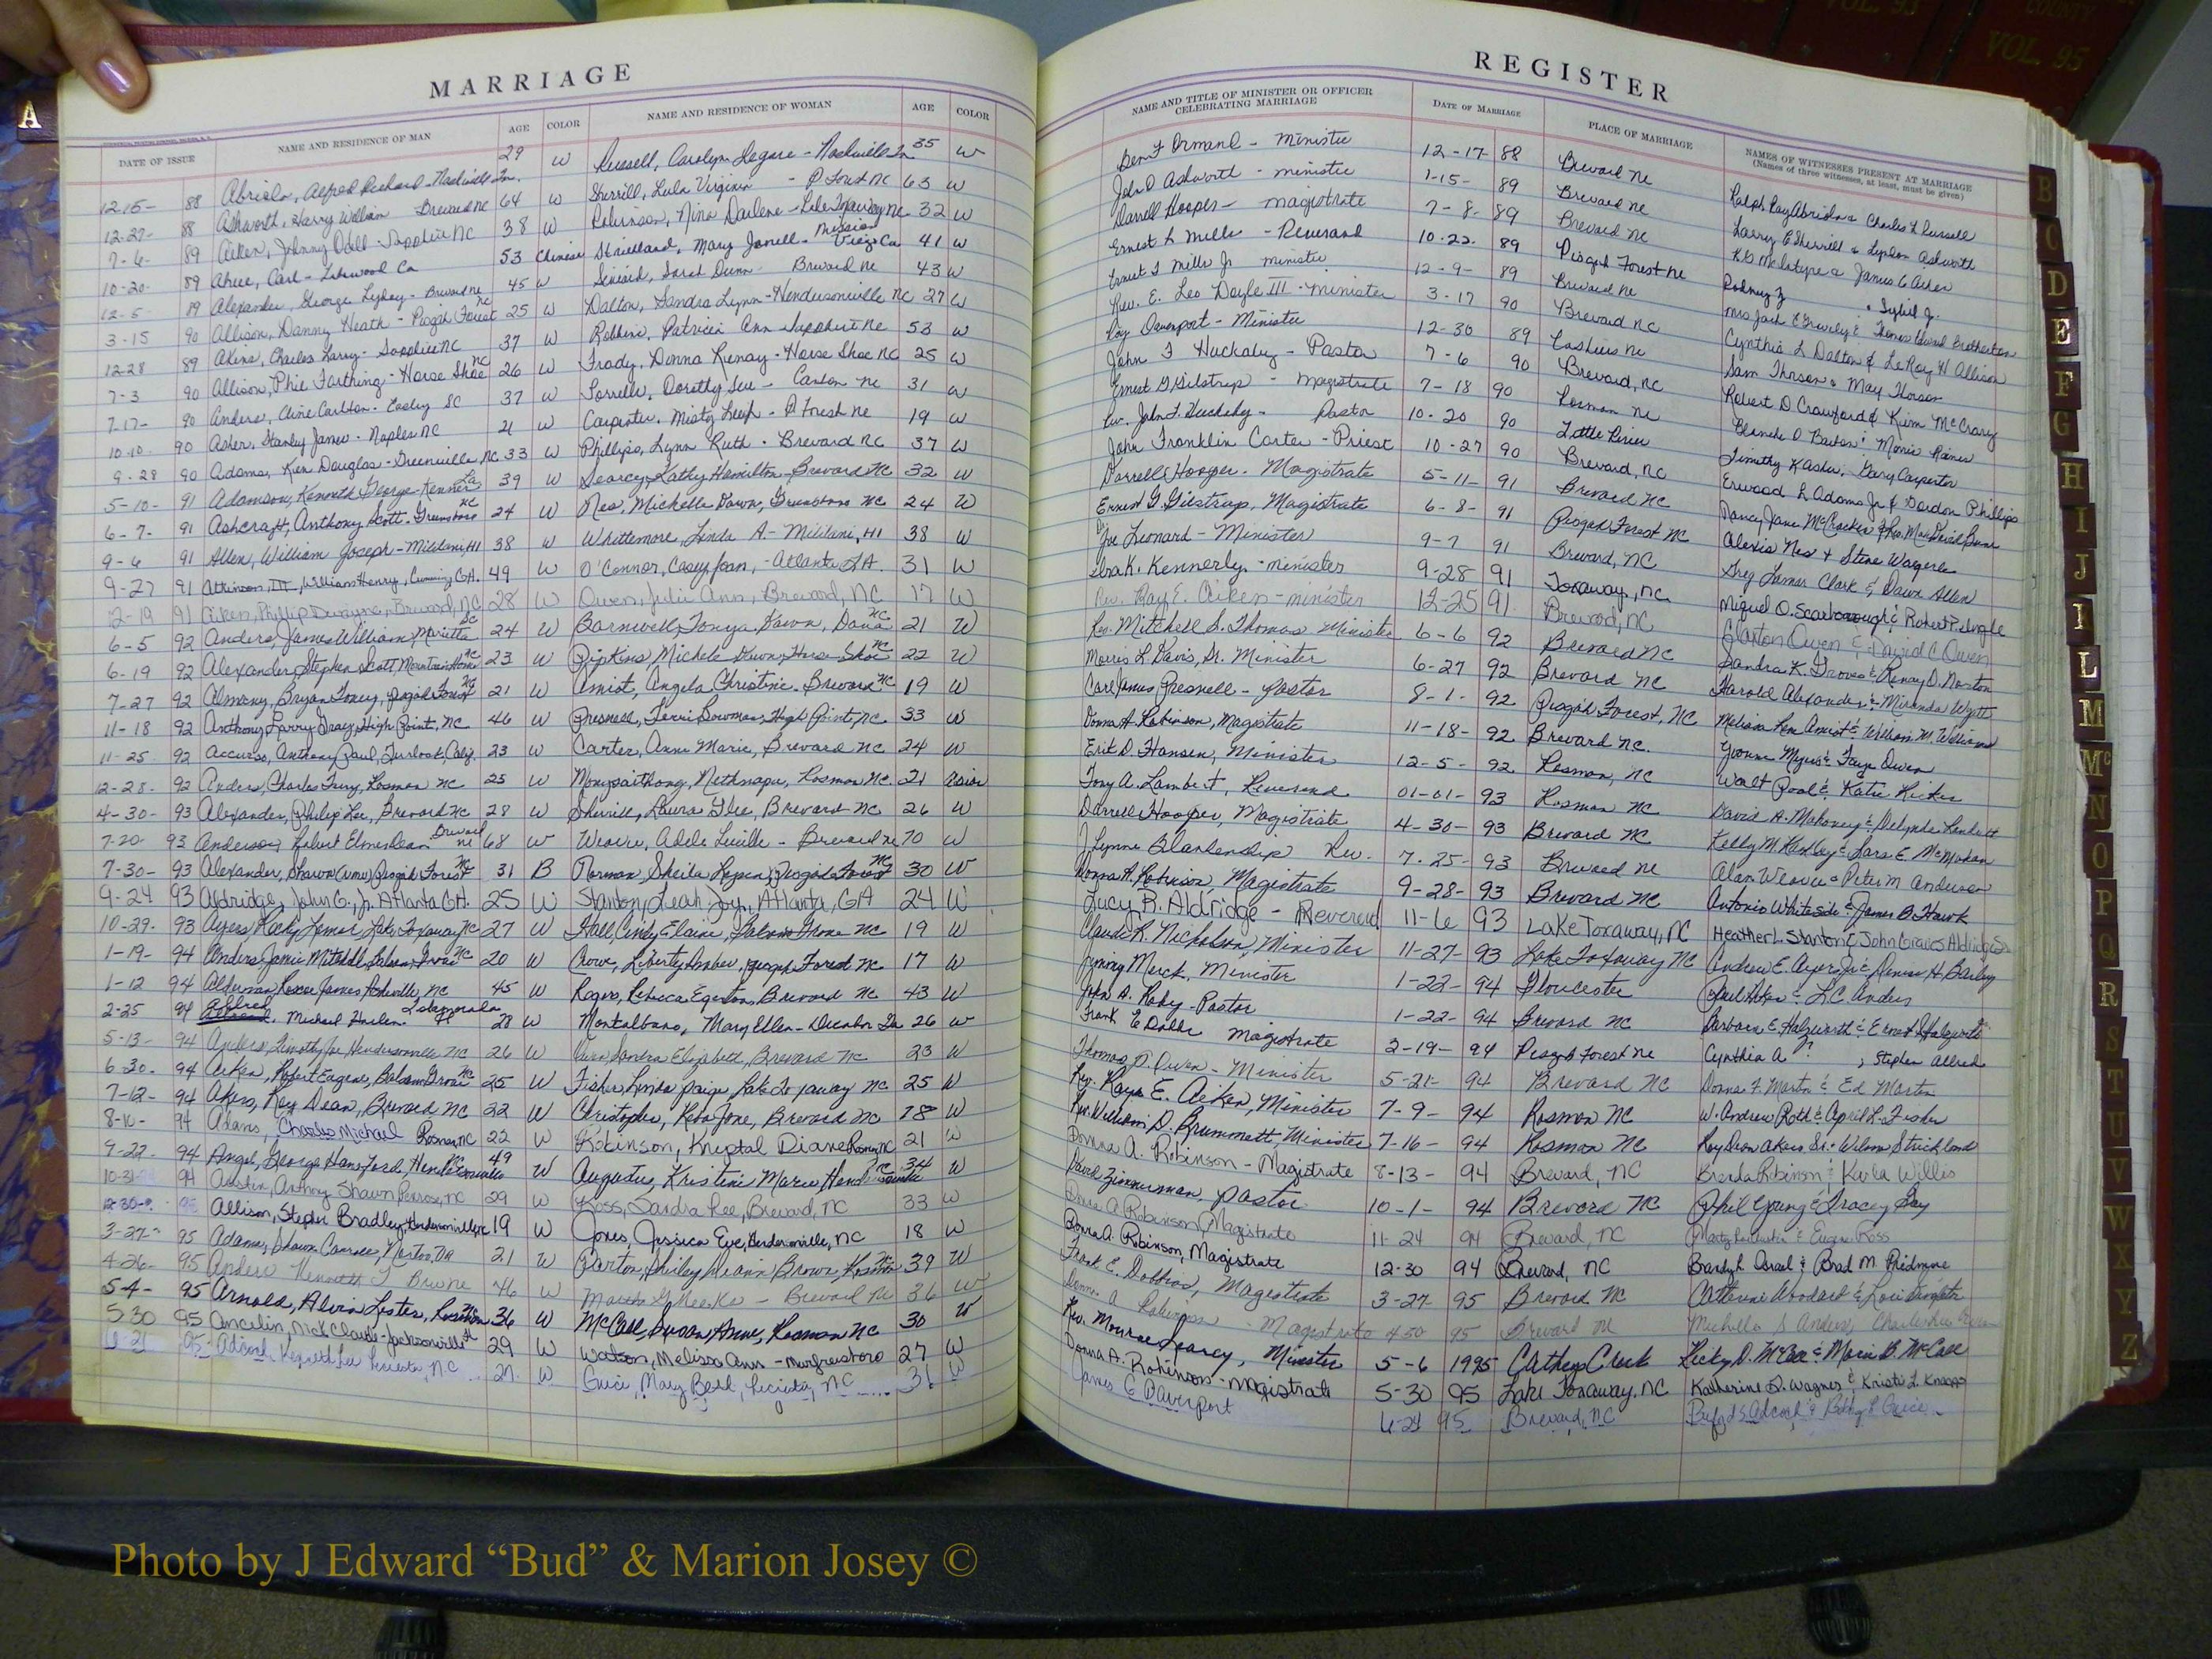 COUNTY
VOL. 93
VOL. 95
A
MARRIAGE
DATE OF ISSUE NAME AND RESIDENCE OF MAN AGE COLOR NAME AND RESIDENCE OF WOMAN AGE COLOR
12-15- 88 Alfred Richard - Nashville Tn. 29 W Russell, Carolyn Legare - Nashville Tn 35 W
12-27- 88 Ashworth, Harry William Brevard NC 64 W Sherrill, Lula Virginia - P Forest NC 63 W
7-6- 89 Aiken, Johnny Odell - Sapphire NC 38 W Robinson, Nina Darlene - Lake Toxaway NC 32 W
10-20- 89 Carl - Lakewood Ca 53 Chinese Strickland, Mary Jonell - Mission Viejo Ca 41 W
12-5 89 Alexander, George Lyday - Brevard NC 45 W Siniard, Sarah Dunn - Brevard NC 43 W
3-15 90 Allison, Danny Heath - Pisgah Forest NC 25 W Dalton, Sandra Lynn - Hendersonville NC 27 W
12-28 89 Akins, Charles Larry - Sapphire NC 37 W Robbins, Patricia Ann - Sapphire NC 53 W
7-3 90 Allison, Phil Farthing - Horse Shoe NC 26 W Frady, Donna Renay - Horse Shoe NC 25 W
7-17- 90 Anders, Cline Carlton - Easley SC 37 W Sorrells, Dorothy Sue - Canton NC 31 W
10-10- 90 Asher, Stanley James - Naples NC 21 W Carpenter, Misty Leigh - P Forest NC 19 W
9-28 90 Adams, Ken Douglas - Greenville NC 33 W Phillips, Lynn Ruth - Brevard NC 37 W
5-10- 91 Adamson, Kenneth George - Kenner La 39 W Searcy, Kathy Hamilton - Brevard NC 32 W
6-7- 91 Ashcraft, Anthony Scott - Greensboro NC 24 W Nes, Michelle Dawn, Greensboro NC 24 W
9-6 91 Allen, William Joseph - Mililani HI 38 W Whittemore, Linda A. - Mililani, HI 38 W
9-27 91 Atkinson, III, William Henry, Cumming GA. 49 W O'Connor, Casey Joan, - Atlanta GA. 31 W
12-19 91 Aiken, Phillip Dwayne, Brevard, NC 28 W Owen, Julie Ann, Brevard, NC 17 W
6-5 92 Anders, James William, Marietta SC 24 W Barnwell, Tonya Dawn, Dana NC 21 W
6-19 92 Alexander, Stephen Scott, Mountain Home NC 23 W Pipkins, Michele Dawn, Horse Shoe NC 22 W
7-27 92 Almany, Bryan Toney, Pisgah Forest NC 21 W Amist, Angela Christine - Brevard NC 19 W
11-18 92 Anthony, Larry Gray, High Point, NC 46 W Presnell, Terri Bowman, High Point, NC 33 W
11-25- 92 Accurso, Anthony Paul, Turlock, Calif. 23 W Carter, Anne Marie, Brevard NC 24 W
12-28- 92 Anders, Charles Terry, Rosman NC 25 W Rosman NC. 21 Asian
4-30- 93 Alexander, Philip Lee, Brevard NC 28 W Sherrill, Laura Glee, Brevard NC 26 W
7-20 93 Anderson, Robert Elmer Dean Brevard NC 68 W Weaver, Adele Lucille - Brevard NC 70 W
7-30- 93 Alexander, Shawn Pisgah Forest NC 31 B Norman, Sheila Pisgah Forest NC 30 W
9-24 93 Aldridge, John G., Jr. Atlanta GA. 25 W Stanton, Leah Joy, Atlanta, GA 24 W
10-29- 93 Ayers, Rocky Lamar, Lake Toxaway NC 27 W Hall, Cindy Elaine, Balsam Grove NC 19 W
1-19- 94 Anders, Jamie Mitchell, Balsam Grove NC 20 W Crowe, Liberty Amber, Pisgah Forest NC 17 W
1-12 94 Alderman, Roscoe James, Asheville, NC 45 W Rogers, Rebecca Egerton, Brevard NC 43 W
2-25 94 Allred, Michael Harlen. Islamorada Fl 28 W Montalbano, Mary Ellen - Decatur Ga 26 W
5-13- 94 Anders, Timothy Joe Hendersonville NC 26 W Sandra Elizabeth, Brevard NC 23 W
6-30- 94 Aiken, Robert Eugene, Balsam Grove NC 25 W Fisher, Linda Paige Lake Toxaway NC 25 W
7-12- 94 Akers, Roy Dean, Brevard NC 22 W Christopher, Reba Jane, Brevard NC 18 W
8-10- 94 Adams, Charles Michael Rosman NC 22 W Robinson, Kryptal Diane Rosman NC 21 W
9-22- 94 Angel, George Hansford, Hendersonville NC 49 W Augusta, Kristine Marie Hendersonville NC 34 W
10-31 94 Austin, Anthony Shawn Penrose, NC 29 W Ross, Sandra Lee, Brevard, NC 33 W
12-30- Allison, Stephen Bradley, Hendersonville, NC 19 W Jones, Jessica Eve, Hendersonville, NC 18 W
3-27- 95 Adams, Shawn Norton, VA 21 W Parton, Shirley Brown, Rosman NC 39 W
4-26- 95 Anders Kenneth 46 W Brevard NC 36 W
5-4- 95 Arnold, Alvin Lester, Rosman 36 W McCall, Susan Anne, Rosman NC 30 W
5-30 95 Ancelin, Nick Claude - Jacksonville 29 W Watson, Melissa Ann - Murfreesboro 27 W
6-21 95 Adcock, Kenneth Lee NC 27 W Guice, Mary Beth, NC 31 W
REGISTER
NAME AND TITLE OF MINISTER OR OFFICER CELEBRATING MARRIAGE DATE OF MARRIAGE PLACE OF MARRIAGE NAMES OF WITNESSES PRESENT AT MARRIAGE
(Names of three witnesses, at least, must be given)
Ben F Ormand - Minister 12-17- 88 Brevard NC Charles L Russell
John D Ashworth - minister 1-15- 89 Brevard NC Larry E Sherrill & Lyndon Ashworth
Darrell Hooper - magistrate 7-8- 89 Brevard NC McIntyre & James C Asher
Ernest L Mills - Reverend 10-22- 89 Pisgah Forest NC Rodney & Sybil J.
Ernest L Mills Jr minister 12-9- 89 Brevard NC
Rev. E. Leo Doyle III - Minister 3-17 90 Brevard NC Cynthia L Dalton & LeRoy H Allison
Roy Davenport - Minister 12-30 89 Cashiers NC Sam Thorson & May Thorson
John F Huckaby - Pastor 7-6 90 Brevard, NC Robert D Crawford & Kim McCrary
Ernest G Gilstrap - Magistrate 7-18 90 Rosman NC
Rev. John F. Huckaby - Pastor 10-20 90 Little River Timothy K Asher, Gary Carpenter
John Franklin Carter - Priest 10-27 90 Brevard, NC Erwood L Adams Jr & Dardon Phillips
Darrell Hooper - Magistrate 5-11- 91 Brevard NC
Ernest G. Gilstrap, Magistrate 6-8- 91 Pisgah Forest NC Alexis Nes & Steve
Joe Leonard - Minister 9-7 91 Brevard, NC Greg Lamar Clark & Dawn Allen
Ebra K. Kennerly - minister 9-28 91 Toxaway, NC Miguel O. Scarborough & Robert P. Ingle
Rev. Ray E. Aiken - minister 12-25 91 Brevard, NC Claxton Owen & David C. Owen
Rev. Mitchell S. Thomas Minister 6-6 92 Brevard NC
Morris L. Davis, Sr. Minister 6-27 92 Brevard NC Harold Alexander & Miranda Wyatt
Carl James Presnell - Pastor 8-1- 92 Pisgah Forest, NC
Donna A. Robinson, Magistrate 11-18- 92 Brevard NC. Yvonne Myers & Faye Owen
Erik D. Hansen, Minister 12-5- 92 Rosman, NC Walt Pool & Katie
Tony A. Lambert, Reverend 01-01- 93 Rosman NC David A. Mahoney &
Darrell Hooper, Magistrate 4-30- 93 Brevard NC
J Lynne Blankenship Rev. 7-25- 93 Brevard NC Alan Weaver & Peter M Anderson
Donna A. Robinson, Magistrate 9-28- 93 Brevard NC Antonio Whiteside & James B. Hawk
Lucy R. Aldridge - Reverend 11-6 93 Lake Toxaway, NC Heather L. Stanton & John Graves Aldridge Sr
Claude R. Nicholson, Minister 11-27- 93 Lake Toxaway NC Andrew E. Ayers Jr &
Jimmy Merck, Minister 1-22- 94 Gloucester & L.C. Anders
John A. Roby - Pastor 1-22- 94 Brevard NC Barbara E. Holzworth & Ernest S. Holzworth
Frank E Dolbe Magistrate 2-19- 94 Pisgah Forest NC Cynthia A ? ; Stephen Allred
Thomas D. Owen - Minister 5-21- 94 Brevard NC Donna F. Martin & Ed Martin
Rev. Raye E. Aiken, Minister 7-9- 94 Rosman NC W. Andrew Roth & April L. Fisher
Rev. William D. Brummett, Minister 7-16- 94 Rosman NC Roy Dean Akers Sr. & Wilson Strickland
Donna A. Robinson - Magistrate 8-13- 94 Brevard, NC Brenda Robinson & Karla Willis
David Zimmerman, Pastor 10-1- 94 Brevard NC Phil Young & Tracey Gay
Donna A Robinson, Magistrate 11-24 94 Brevard, NC & Eugene Ross
Donna A. Robinson, Magistrate 12-30 94 Brevard, NC & Brad M. Pridmore
Frank E. Magistrate 3-27- 95 Brevard NC Catherine Woodard &
Donna A Robinson - Magistrate 4-30 95 Brevard NC Michelle S Anders,
Rev. Monroe Searcy, Minister 5-6 1995 Cathey's Creek Ricky D. McCall & B. McCall
Donna A. Robinson - Magistrate 5-30 95 Lake Toxaway, NC Katherine D. Wagner & Kristi L. Knapp
James E Davenport 6-24 95 Brevard, NC Adcock & Bobby Guice
B
C
D
E
F
G
H
I
J
K
L
M
Mc
N
O
P
Q
R
S
T
U
V
W
X
Y
Z
Photo by J Edward “Bud” & Marion Josey ©